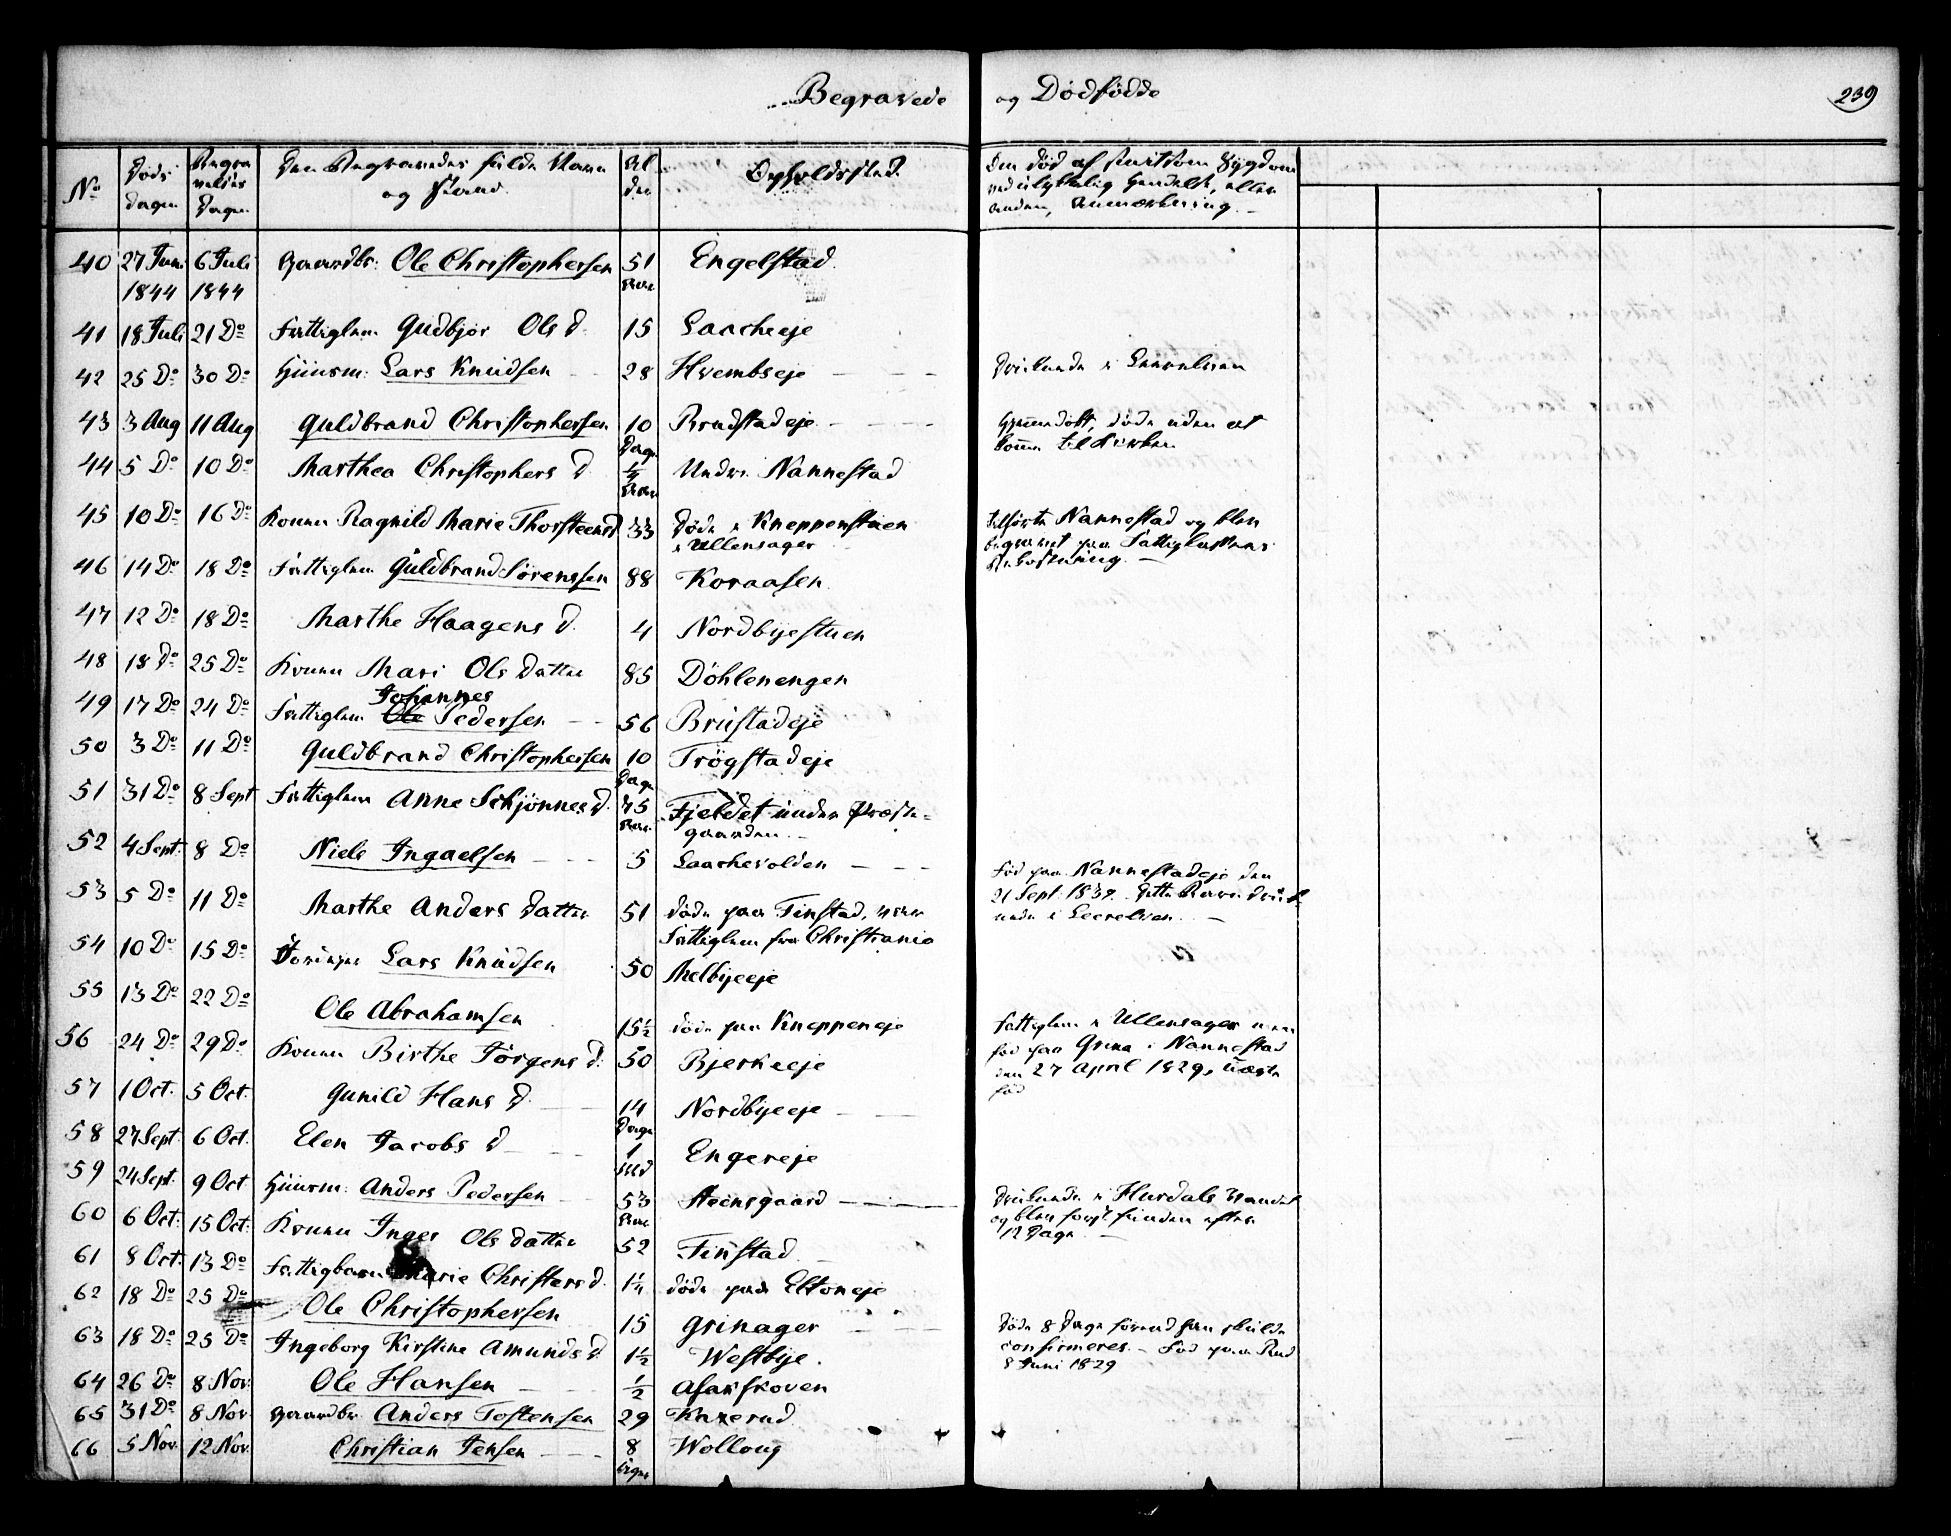 Begravede og Dødfødte
239
No Døds Dagen Begravelses Dagen Den Begravedes fulde Navn og Stand. Alder Opholdssted. Den død af smitsom Sygdom ved ulykkelig Hændelse, eller anden Anmærkning.
40 27 Juni 1844 6 Juli 1844 Gaardbr: Ole Christophersen 51 Aar Engelstad.
41 18 Juli 21 Do Fattiglem Gudbjør Ols d. 15 Laacheeje
42 25 Do 30 Do Huusm: Lars Knudsen 28 Hvembseje Druknede i Leerelven
43 3 Aug 11 Aug Guldbrand Christophersen 10 Dage Rudstadeje Hjemmedøbt, døde uden at komme til Kirken
44 5 Do 10 Do Marthea Christophers d. 1/4 Aar Undre Nannestad
45 10 Do 16 Do Konen Ragnild Marie Thorsteensd. 33 Døde i Kneppenstuen i Ullensager tilførte Nannestad og blev begravet paa Fattigkassens Bekostning.
46 14 Do 18 Do Fattiglem Guldbrand Sørenssen 88 Koraasen.
47 12 Do 18 Do Marthe Haagens d. 4 Nordbyestuen
48 18 Do 25 Do Konen Mari Ols Datter 85 Döhlenengen
49 17 Do 24 Do Fattiglem Ole Johannes Pedersen 56 Brustadeje
50 3 Do 11 Do Guldbrand Christophersen 10 Dage Trögstadeje
51 31 Do 8 Sept Fattiglem Anne Schjönnes d. 75 Aar Fjeldet under Præstegaarden.
52 4 Sept. 8 Do Niels Ingaelsen 5 Laachevolden Fød paa Nannestadeje den 21 Sept: 1839. Dette Barn druknede i Leerelven.
53 5 Do 11 Do Marthe Anders Datter 51 døde paa Finstad, var Fattiglem fra Christiania
54 10 Do 15 Do Lars Knudsen 50 Melbyeeje
55 13 Do 22 Do Ole Abrahamsen 15 1/2 døde paa Kneppeneje Fattiglem i Ullensager men fød paa Grina i Nannestad den 27 April 1829, uægte fød
56 24 Do 29 Do Konen Birthe Jörgens d. 50 Bjerkeeje
57 1 Oct. 5 Oct. Gunild Hans d. 14 Dage Nordbyeeje
58 27 Sept. 6 Oct. Elen Jacobs d. 1 Md Engereje
59 24 Sept. 9 Oct Huusm: Anders Pedersen 53 Aar Steensgaard Druknede i Hurdals Vandet og blev først funden efter 12 Dage.
60 6 Oct. 15 Oct. Konen Inger Ols Datter 52 Finstad
61 8 Oct. 13 Do Fattigbarn Marie Christens d. 1 1/4 døde paa Eltoneje
62 18 Do 25 Do Ole Christophersen 15 Grinager Døde 8 Dage førend han skulde confirmeres. Fød paa Rud 8 Juni 1829
63 18 Do 25 Do Ingeborg Kirstine Amunds d. 1 1/2 Westbye.
64 26 Do 8 Nov. Ole Hansen 1/2 Asakskoven
65 31 Do 8 Nov Gaardbr. Anders Tostensen 29 Kaxerud
66 5 Nov. 12 Nov. Christian Jensen 8 Uger Wolloug